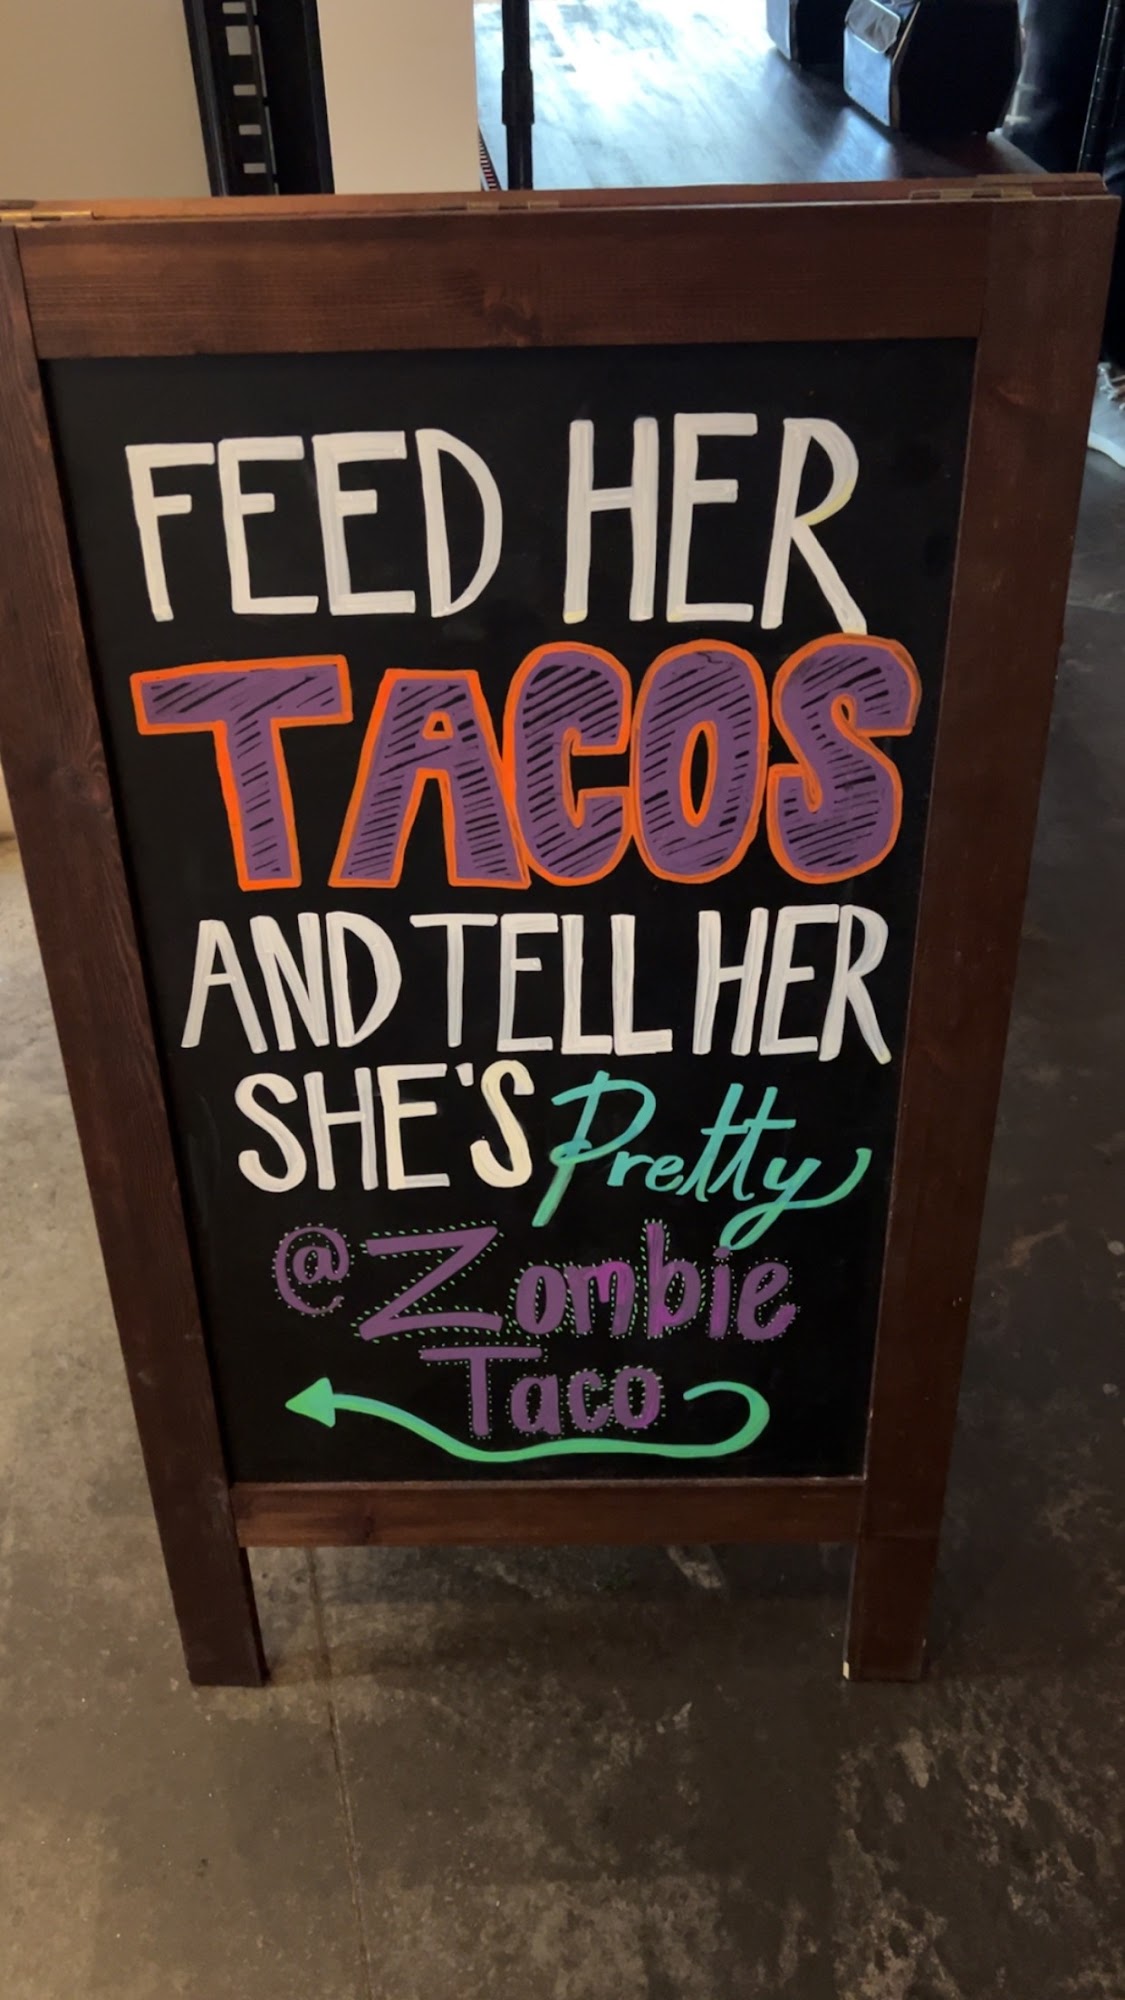 FEED HER
TACOS
AND TELL HER
SHE'S Pretty
@Zombie
Taco